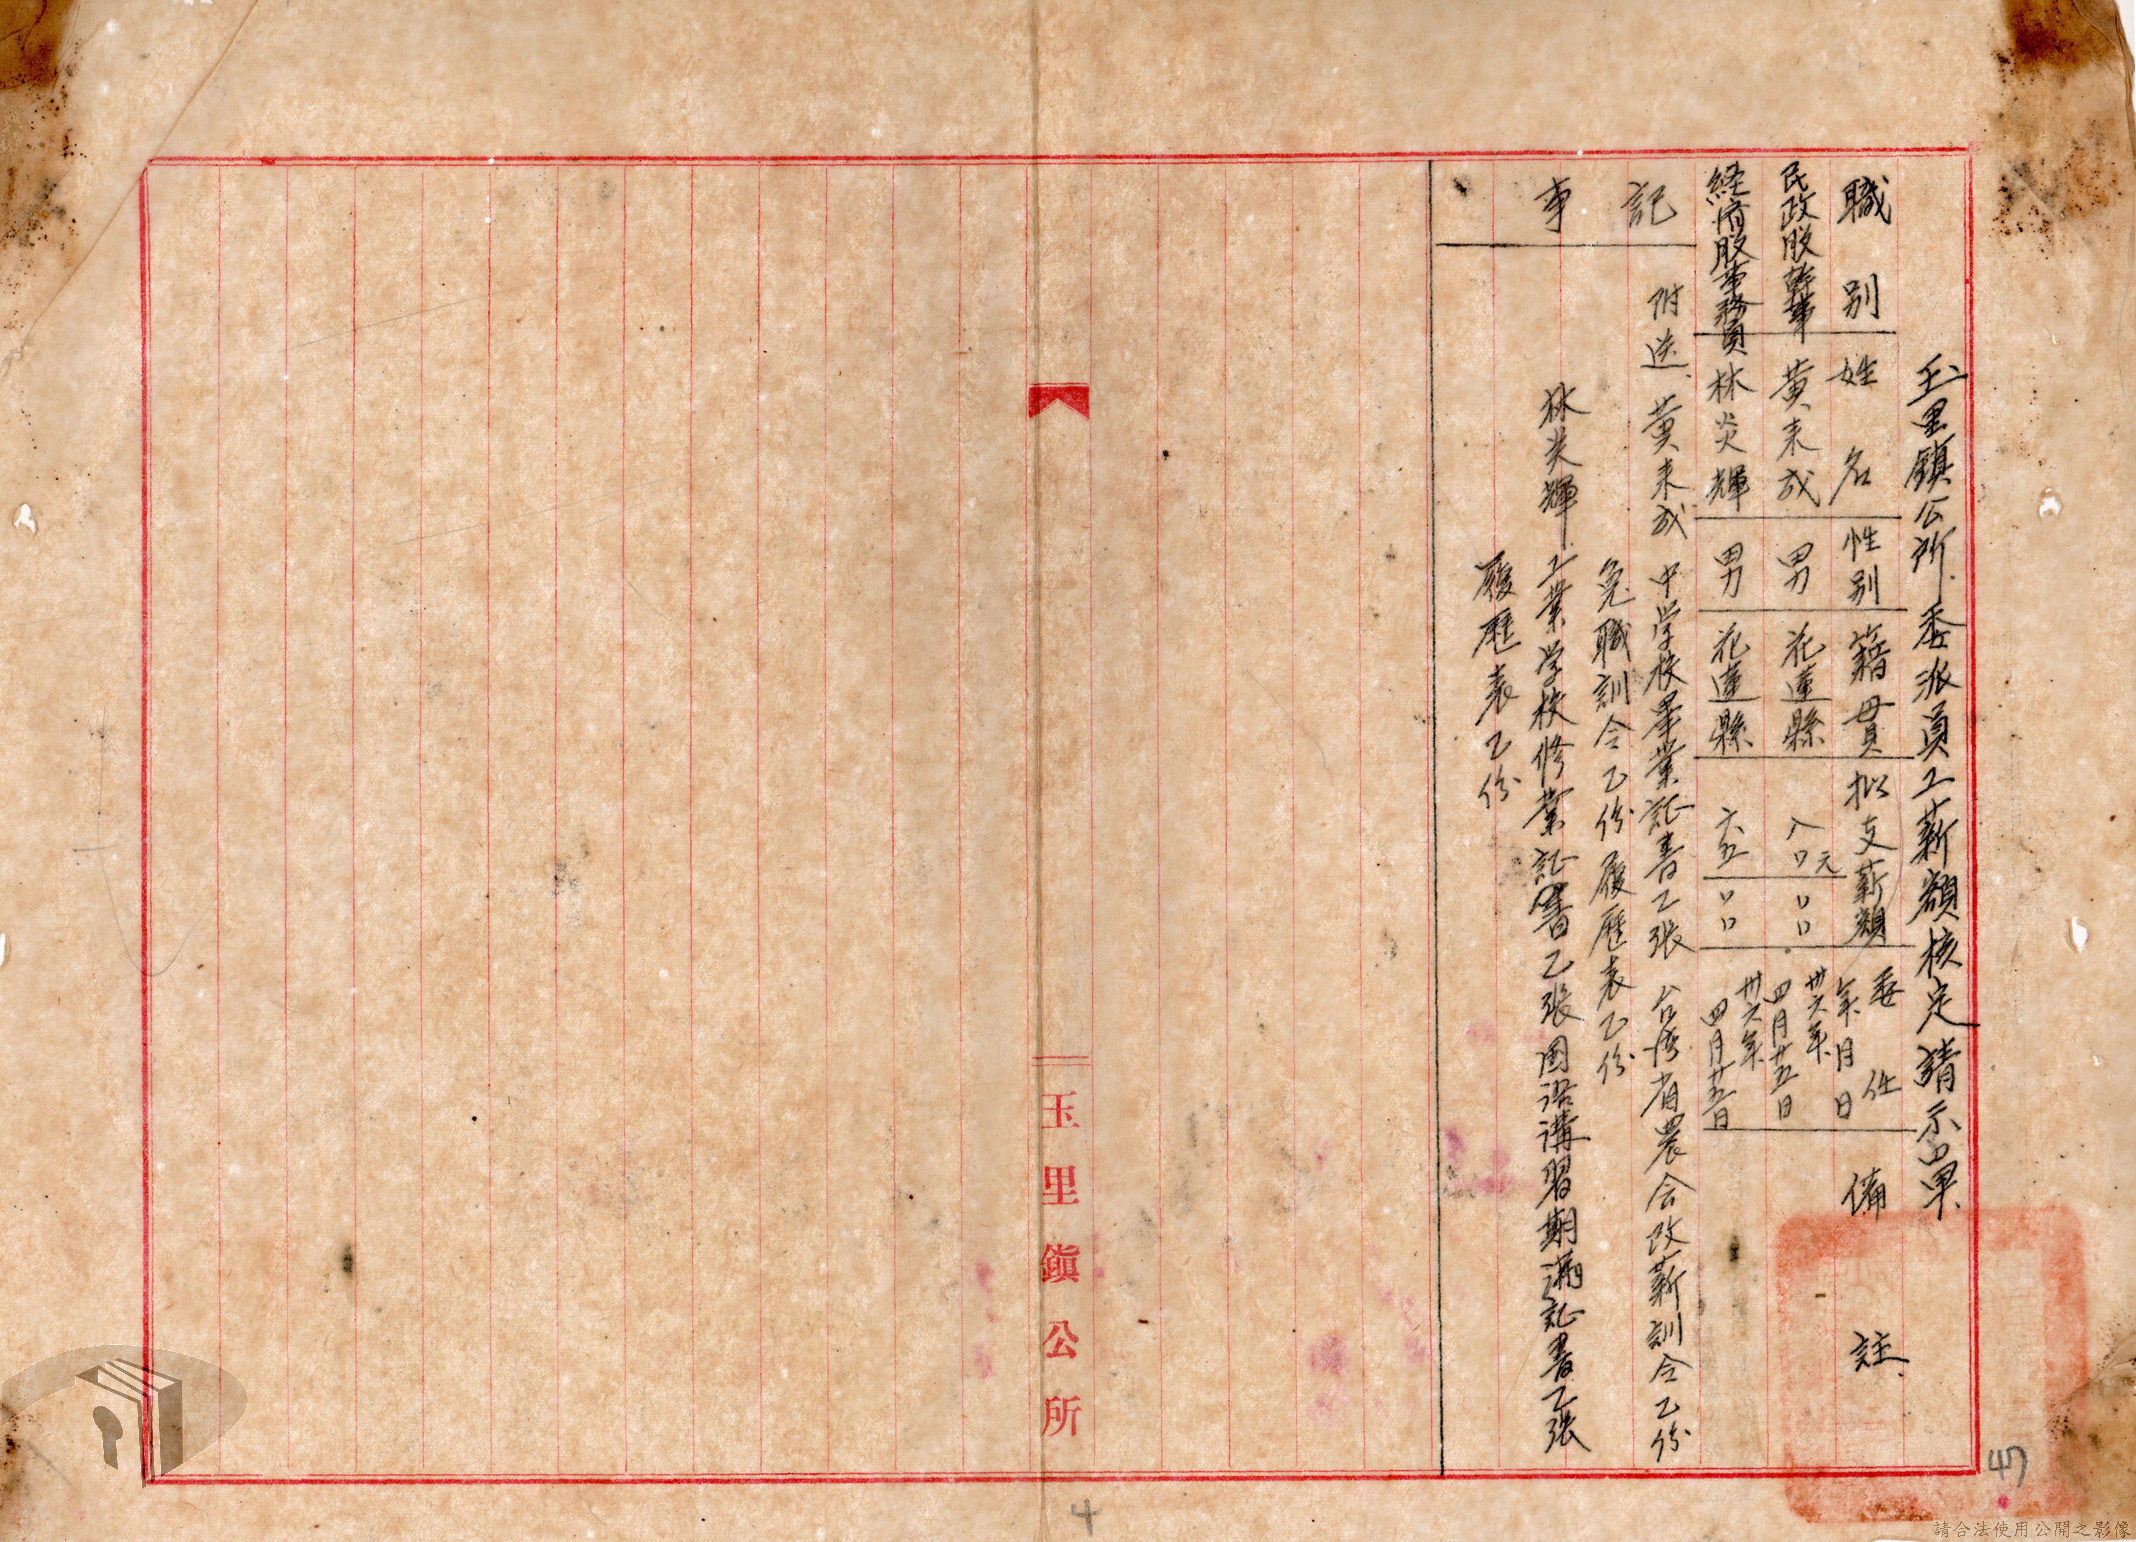 玉里鎮公所委派員工薪額核定請示單
職別 姓名 性別 籍貫 拟支薪額 委任年月日 備註
民政股幹事 黃来成 男 花蓮縣 八〇元〇〇 卅六年四月廿五日
経済股事務員 林炎輝 男 花蓮縣 六五〇〇 卅六年四月廿五日
記事
附送 黃来成 中学校畢業証書乙張 台湾省農会改薪訓令乙份
免職訓令乙份 履歷表乙份
林炎輝 工業学校修業証書乙張 国语講習期滿証書乙張
履歷表乙份
玉里鎮公所
4
47
請合法使用公開之影像